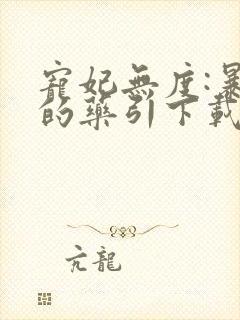 寵妃無度:暴
的藥引下載
亢龍